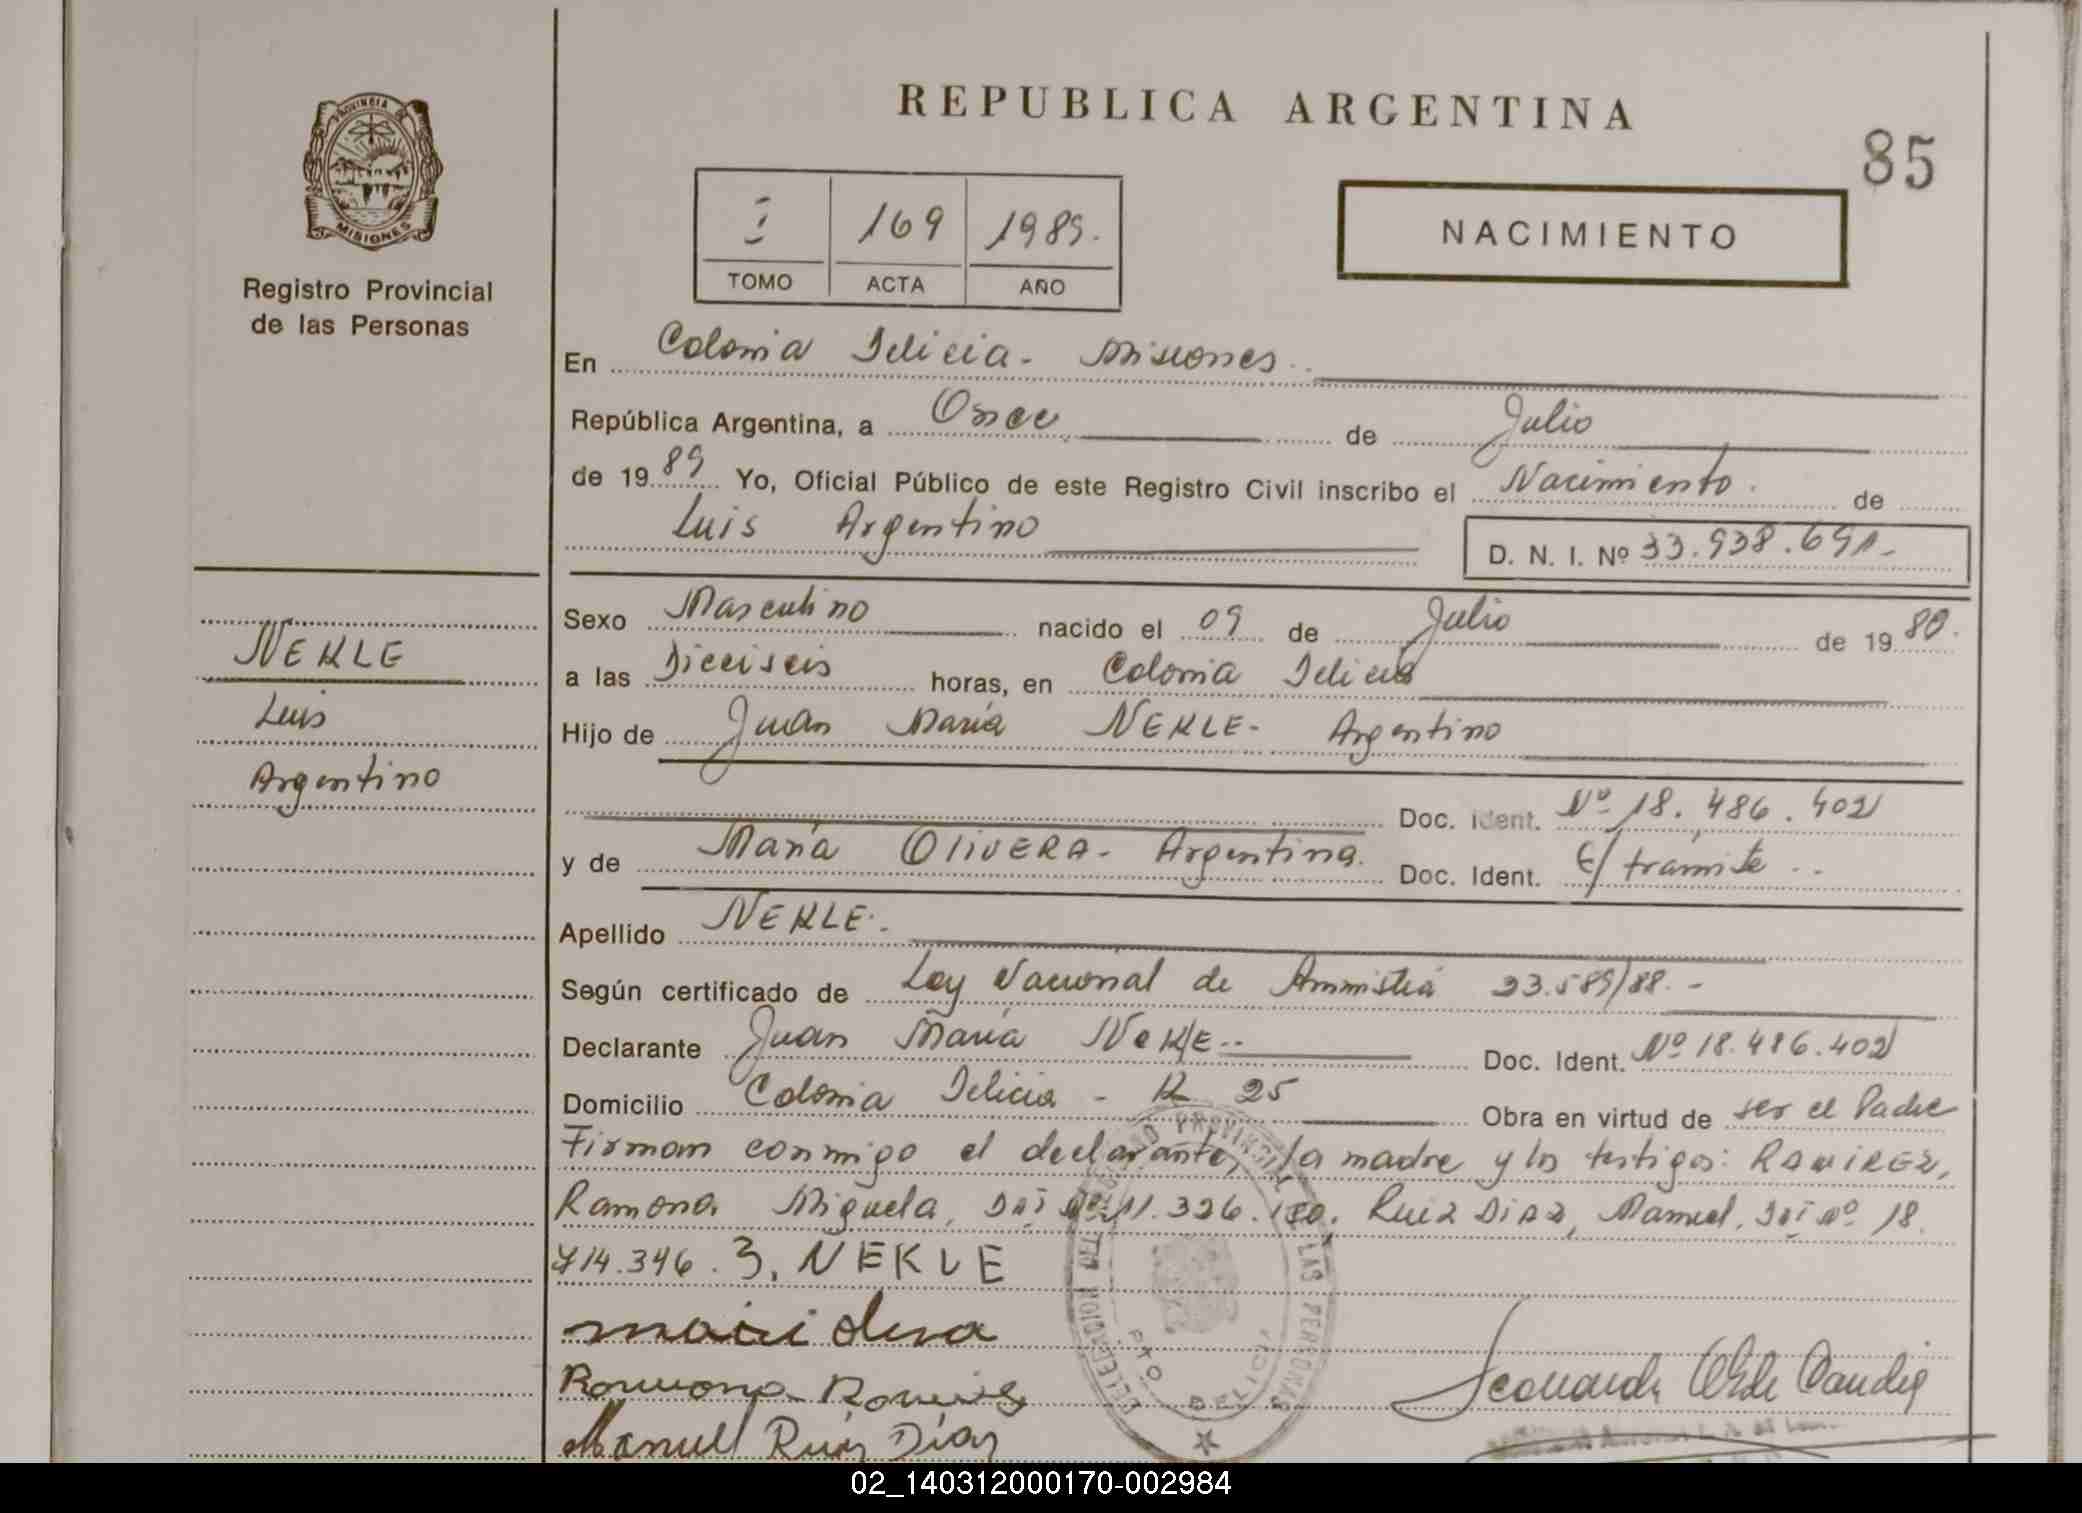 REPUBLICA ARGENTINA
85
PROVINCIA DE
MISIONES
Registro Provincial
de las Personas
I 169 1989.
TOMO ACTA AÑO
NACIMIENTO
En Colonia Delicia - Misiones
República Argentina, a Once de Julio
de 1989 Yo, Oficial Público de este Registro Civil inscribo el Nacimiento de
Luis Argentino
D. N. I. Nº 33.938.691-
Sexo Masculino nacido el 09 de Julio de 1980.
a las Dieciseis horas, en Colonia Delicia
Hijo de Juan María NEKLE - Argentino
Doc. Ident. Nº 18.486.402
y de María OLIVERA - Argentina. Doc. Ident. E/ trámite
Apellido NEKLE.
Según certificado de Ley Nacional de Amnistía 23.589/88.-
Declarante Juan María NeKlE Doc. Ident. Nº 18.486.402
Domicilio Colonia Delicia - K 25 Obra en virtud de ser el Padre
Firman conmigo el declarante, la madre y los testigos: RAMIREZ,
Ramona Miguela, DNI Nº 11.326. RUIZ DIAZ, Manuel, DNI Nº 18.
714.346. J. NEKLE
NEKLE
Luis
Argentino
Manuel Ruiz Díaz
DELEGACION DEL REGISTRO PROVINCIAL DE LAS PERSONAS
PTO DELICIA
02_140312000170-002984